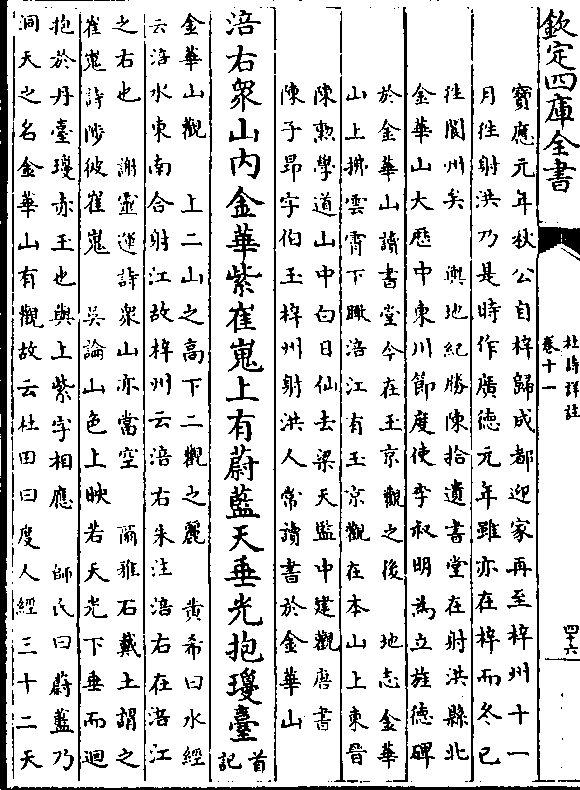 欽定四庫全書
杜詩詳註
卷十一
四十六
寶應元年秋公自梓歸成都迎家再至梓州十一
月往射洪乃是時作廣徳元年雖亦在梓而冬已
往閬州矣　輿地紀勝陳拾遺書堂在射洪縣北
金華山大歴中東川節度使李叔明為立旌德碑
於金華山讀書堂今在玉京觀之後　地志金華
山上拂雲霄下瞰涪江有玉京觀在本山上東晉
陳勲學道山中白日仙去梁天監中建觀唐書
陳子昂字伯玉梓州射洪人常讀書於金華山
涪右衆山内金華紫崔嵬上有蔚藍天垂光抱瓊臺首記
金華山觀　上二山之高下二觀之麗　黄希曰水經
云涪水東南合射江故梓州云涪右朱注涪右在涪江
之右也　謝靈運詩衆山亦當空　爾雅石戴土謂之
崔嵬詩陟彼崔嵬　吳論山色上映若天光下垂而迴
抱於丹臺瓊赤玉也與上紫字相應　師氏曰蔚藍乃
洞天之名金華山有觀故云杜田曰度人經三十二天